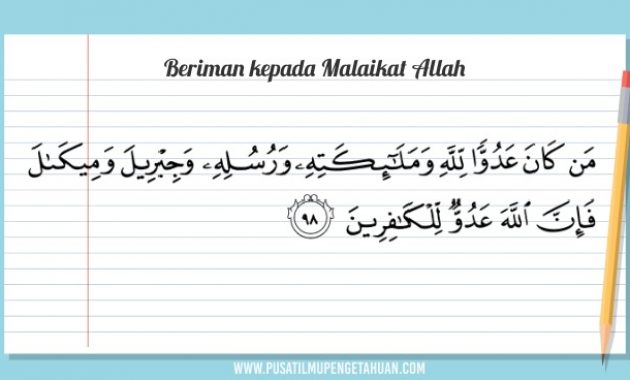 Beriman kepada Malaikat Allah
مَن كَانَ عَدُوًّا لِّلَّهِ وَمَلَـٰٓئِكَتِهِۦ وَرُسُلِهِۦ وَجِبْرِيلَ وَمِيكَىٰلَ
فَإِنَّ ٱللَّهَ عَدُوٌّ لِّلْكَـٰفِرِينَ ٩٨
WWW.PUSATILMUPENGETAHUAN.COM